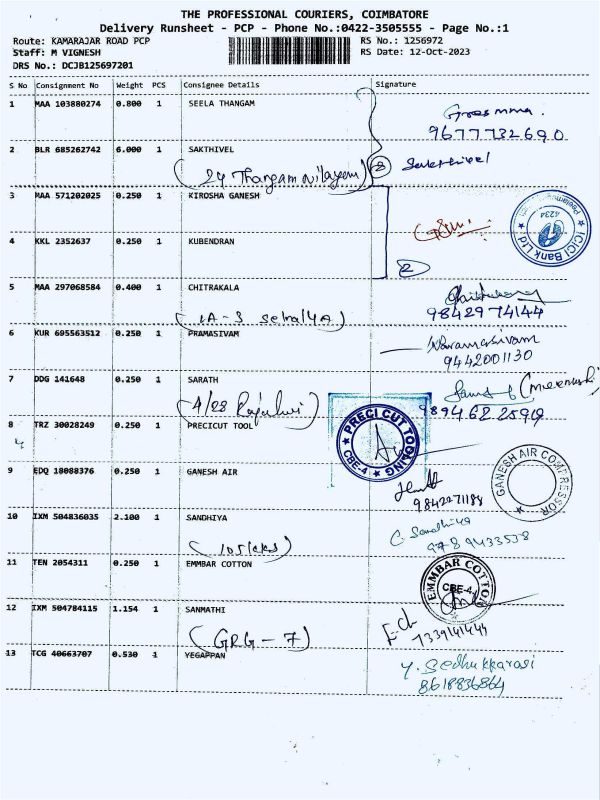 THE PROFESSIONAL COURIERS, COIMBATORE
Delivery Runsheet - PCP - Phone No.:0422-3505555 - Page No.:1
Route: KAMARAJAR ROAD PCP RS No.: 1256972
Staff: M VIGNESH RS Date: 12-Oct-2023
DRS No.: DCJB125697201
S No Consignment No Weight PCS Consignee Details Signature
1 MAA 103880274 0.800 1 SEELA THANGAM
9677732690
2 BLR 685262742 6.000 1 SAKTHIVEL Sakthivel
(24 Thangam Nilayam) 2
3 MAA 571202025 0.250 1 KIROSHA GANESH
ICICI Bank Ltd 4234
4 KKL 2352637 0.250 1 KUBENDRAN
2
5 MAA 297068584 0.400 1 CHITRAKALA
9842974144
6 KUR 695563512 0.250 1 PRAMASIVAM
9442001130
7 DDG 141648 0.250 1 SARATH
9894622599
8 TRZ 30028249 0.250 1 PRECICUT TOOL
PRECI CUT TOOLING CBE-4
9 EDQ 18088376 0.250 1 GANESH AIR
GANESH AIR COMPRESSOR
9842271188
10 IXM 504836035 2.100 1 SANDHIYA
C. Sandhiya
9789433538
11 TEN 2054311 0.250 1 EMMBAR COTTON
EMMBAR COTTON CBE-4
12 IXM 504784115 1.154 1 SANMATHI
(GRG - 7)
7339141444
13 TCG 40663707 0.530 1 YEGAPPAN
Y. Sedhukkarasi
8618836864